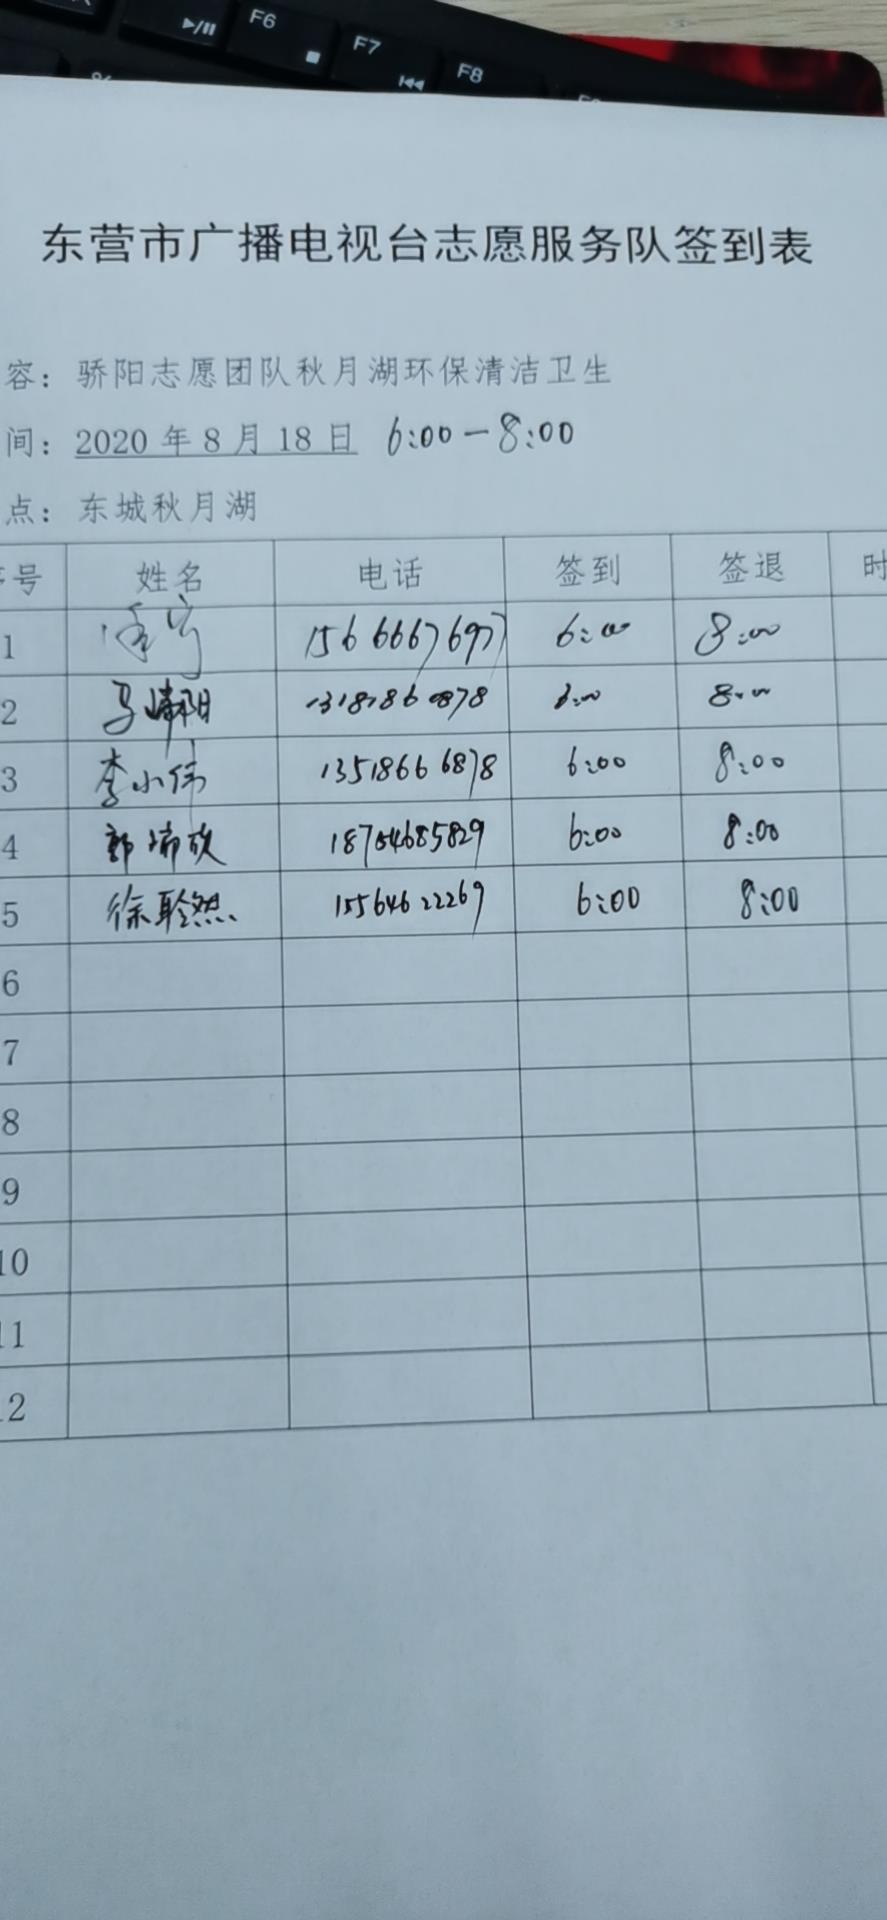 F6
F7
F8
东营市广播电视台志愿服务队签到表
容：骄阳志愿团队秋月湖环保清洁卫生
间：2020 年 8 月 18 日 6:00-8:00
点：东城秋月湖
号 姓名 电话 签到 签退 时
1 15666676977 6:00 8:00
2 马 阳 8:00
3 李小伟 13518666878 6:00 8:00
4 郭 欣 18704685829 6:00 8:00
5 徐聆然 15564622269 6:00 8:00
6
7
8
9
10
11
12